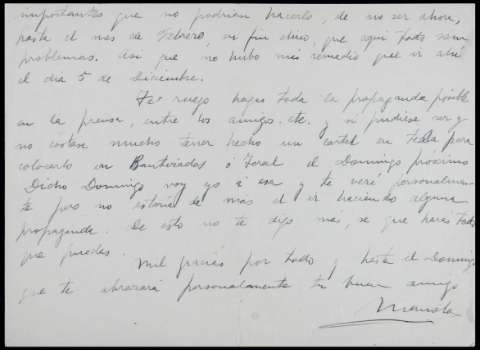 importantes que no podrían hacerlo, de no ser ahora,
hasta el mes de Febrero, en fin chico, que aquí todo son
problemas. Así que no hubo más remedio que ir ahí
el día 5 de Diciembre.
Te ruego hagas toda la propaganda posible
en la prensa, entre los amigos. etc. y si pudiese ser y
no costase mucho tener hecho un cartel en Tela para
colocarlo en ó Foral el Domingo próximo
Dicho Domingo voy yo a esa y te veré personalmen-
te pero no estorba de más el ir haciendo alguna
propaganda. De esto no te digo más, se que harás todo
que puedas.
Mil gracias por todo y hasta el Domingo
que te abrazará personalmente tu buen amigo